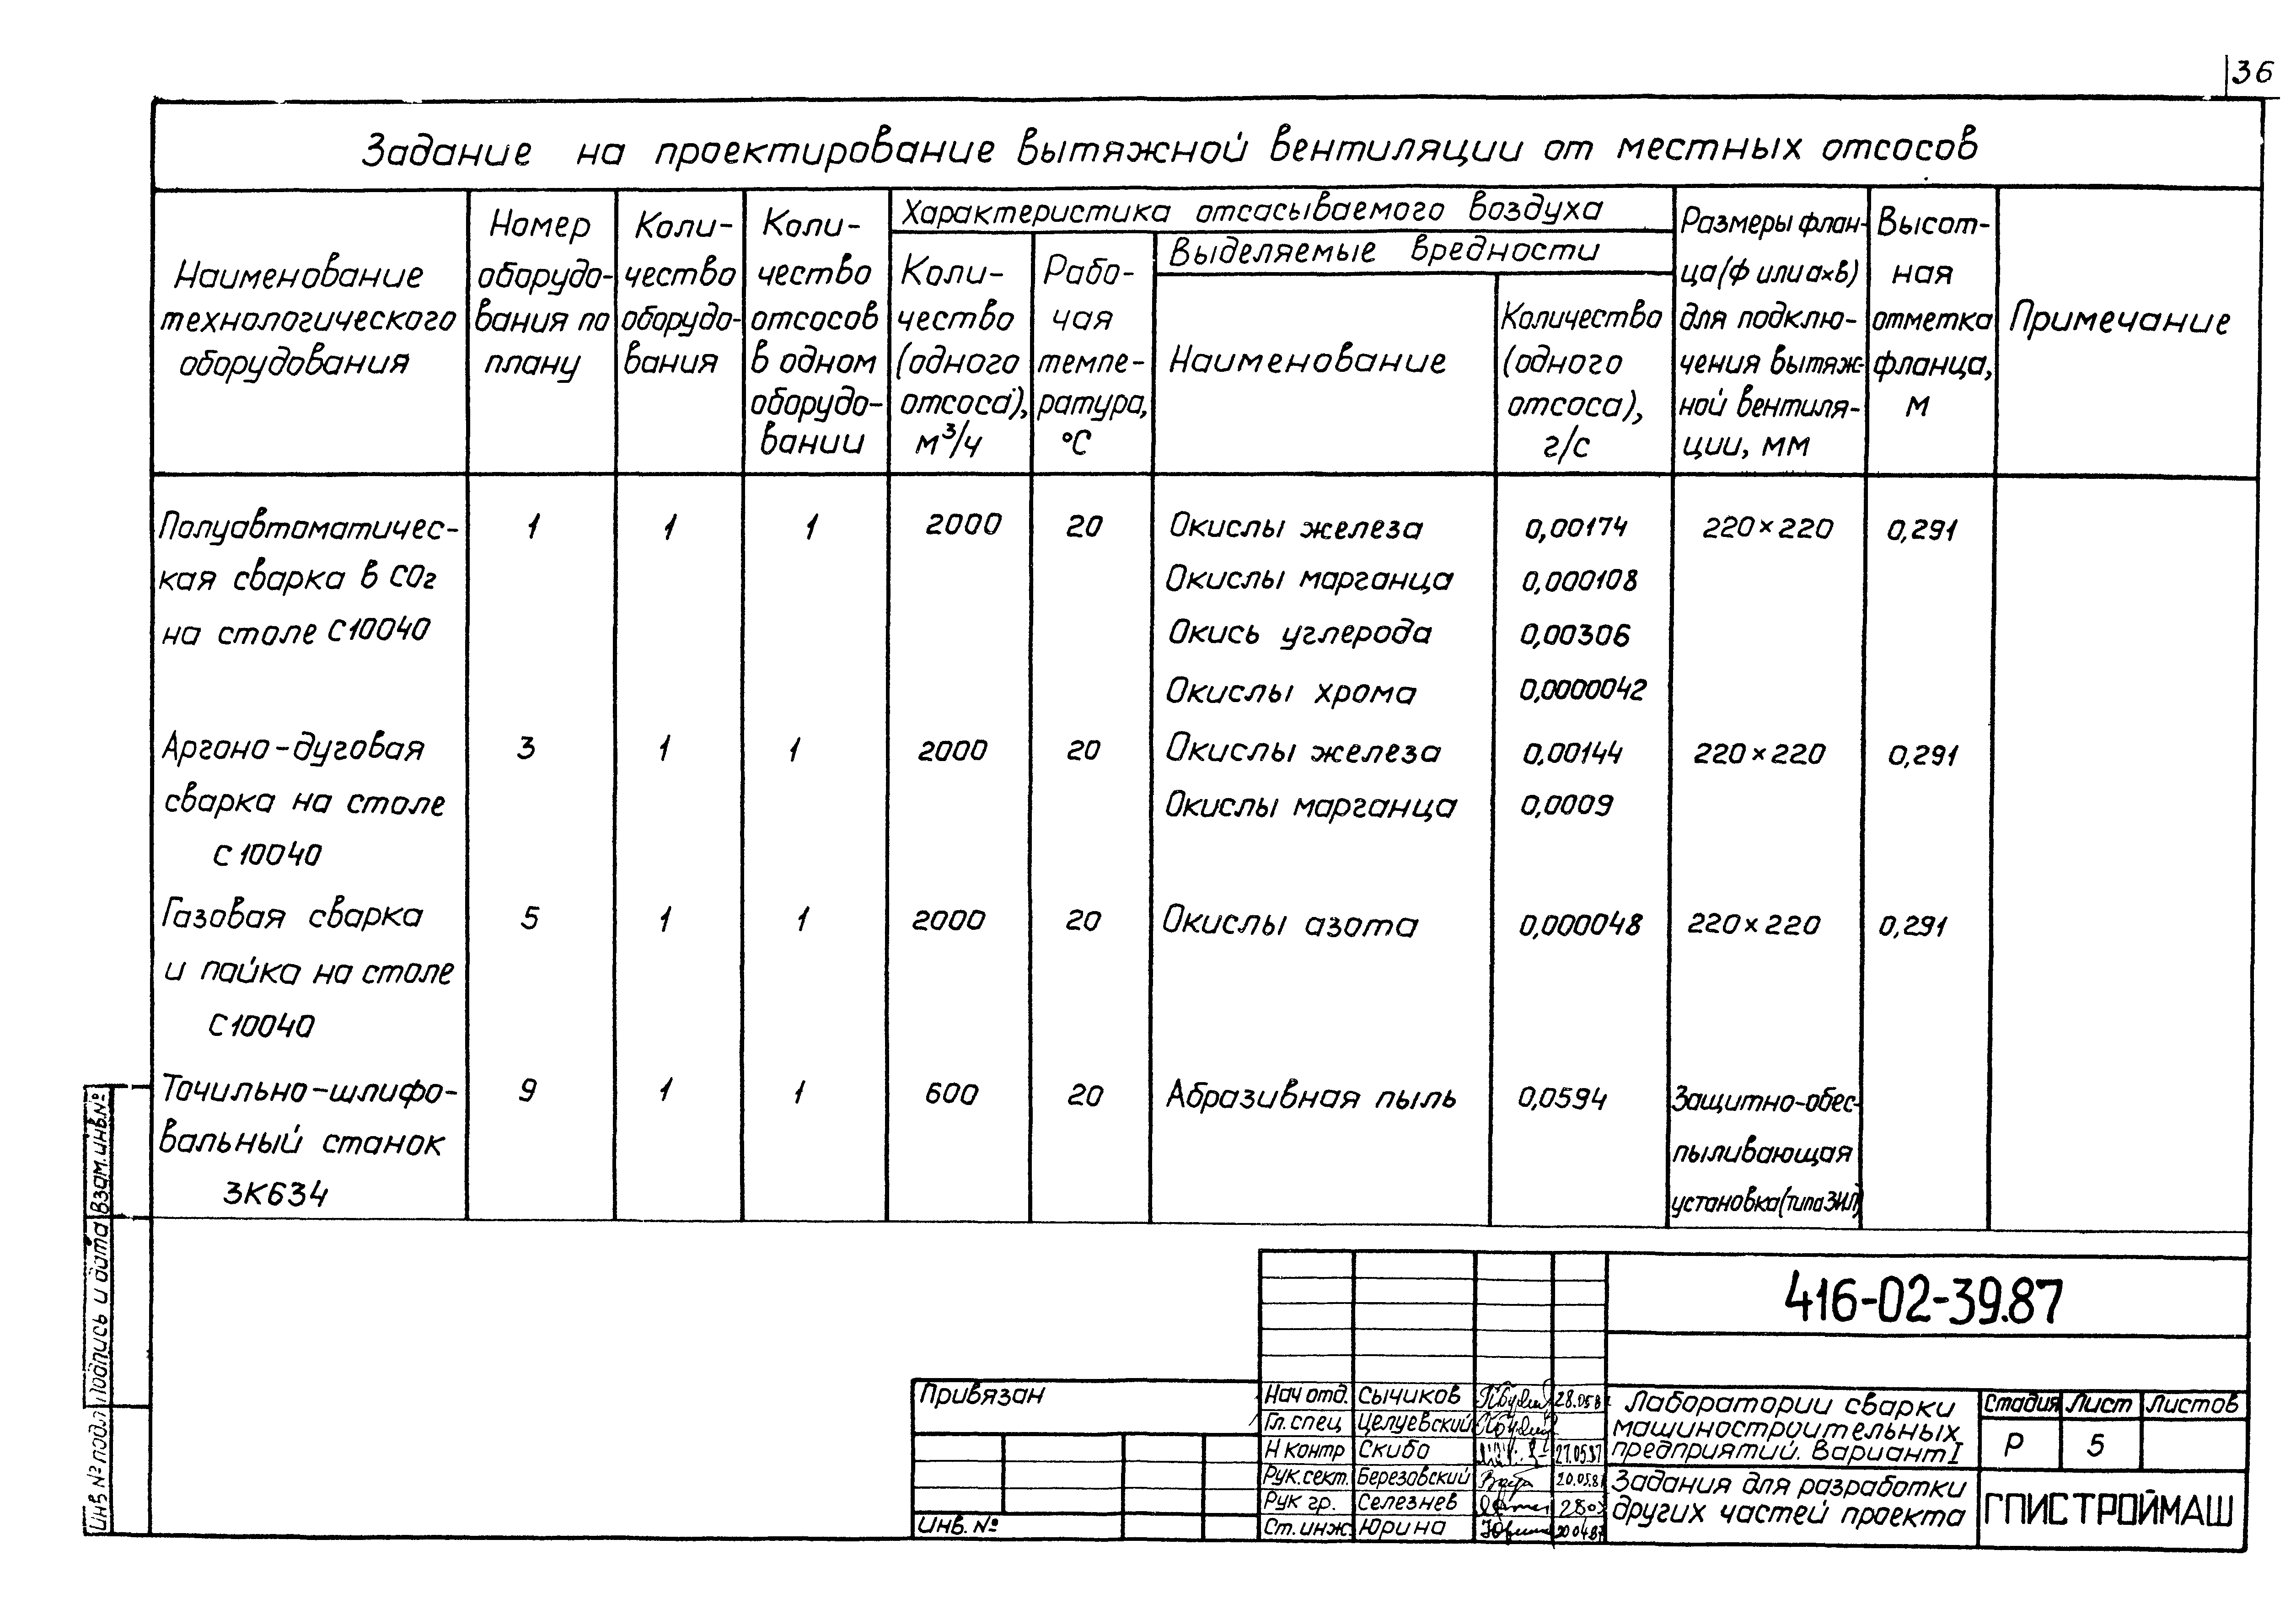 36
Задание на проектирование вытяжной вентиляции от местных отсосов
Наименование
технологического
оборудования
Номер
оборудо-
вания по
плану
Коли-
чество
оборудо-
вания
Коли-
чество
отсосов
в одном
оборудо-
вании
Характеристика отсасываемого воздуха
Коли-
чество
(одного
отсоса),
м³/ч
Рабо-
чая
темпе-
ратура,
°С
Выделяемые вредности
Наименование
Количество
(одного
отсоса),
г/с
Размеры флан-
ца (ф или а×в)
для подклю-
чения вытяж-
ной вентиля-
ции, мм
Высот-
ная
отметка
фланца,
м
Примечание
Полуавтоматичес- 1 1 1 2000 20 Окислы железа 0,00174 220×220 0,291
кая сварка в СО₂ Окислы марганца 0,000108
на столе С10040 Окись углерода 0,00306
Окислы хрома 0,0000042
Аргоно-дуговая 3 1 1 2000 20 Окислы железа 0,00144 220×220 0,291
сварка на столе Окислы марганца 0,0009
С 10040
Газовая сварка 5 1 1 2000 20 Окислы азота 0,000048 220×220 0,291
и пайка на столе
С10040
Точильно-шлифо- 9 1 1 600 20 Абразивная пыль 0,0594 Защитно-обес-
вальный станок пыливающая
3К634 установка (типа ЗИЛ)
Взам.инв.№
Подпись и дата
Инв № подл
416-02-39.87
Привязан
Инв. №
Нач отд. Сычиков
Гл. спец Целуевский
Н контр Скибо 21.05.87
Рук. сект. Березовский
Рук гр. Селезнев
Ст. инж. Юрина 20 04.87
Лаборатории сварки
машиностроительных
предприятий. Вариант I
Стадия Лист Листов
Р 5
Задания для разработки
других частей проекта
ГПИСТРОЙМАШ